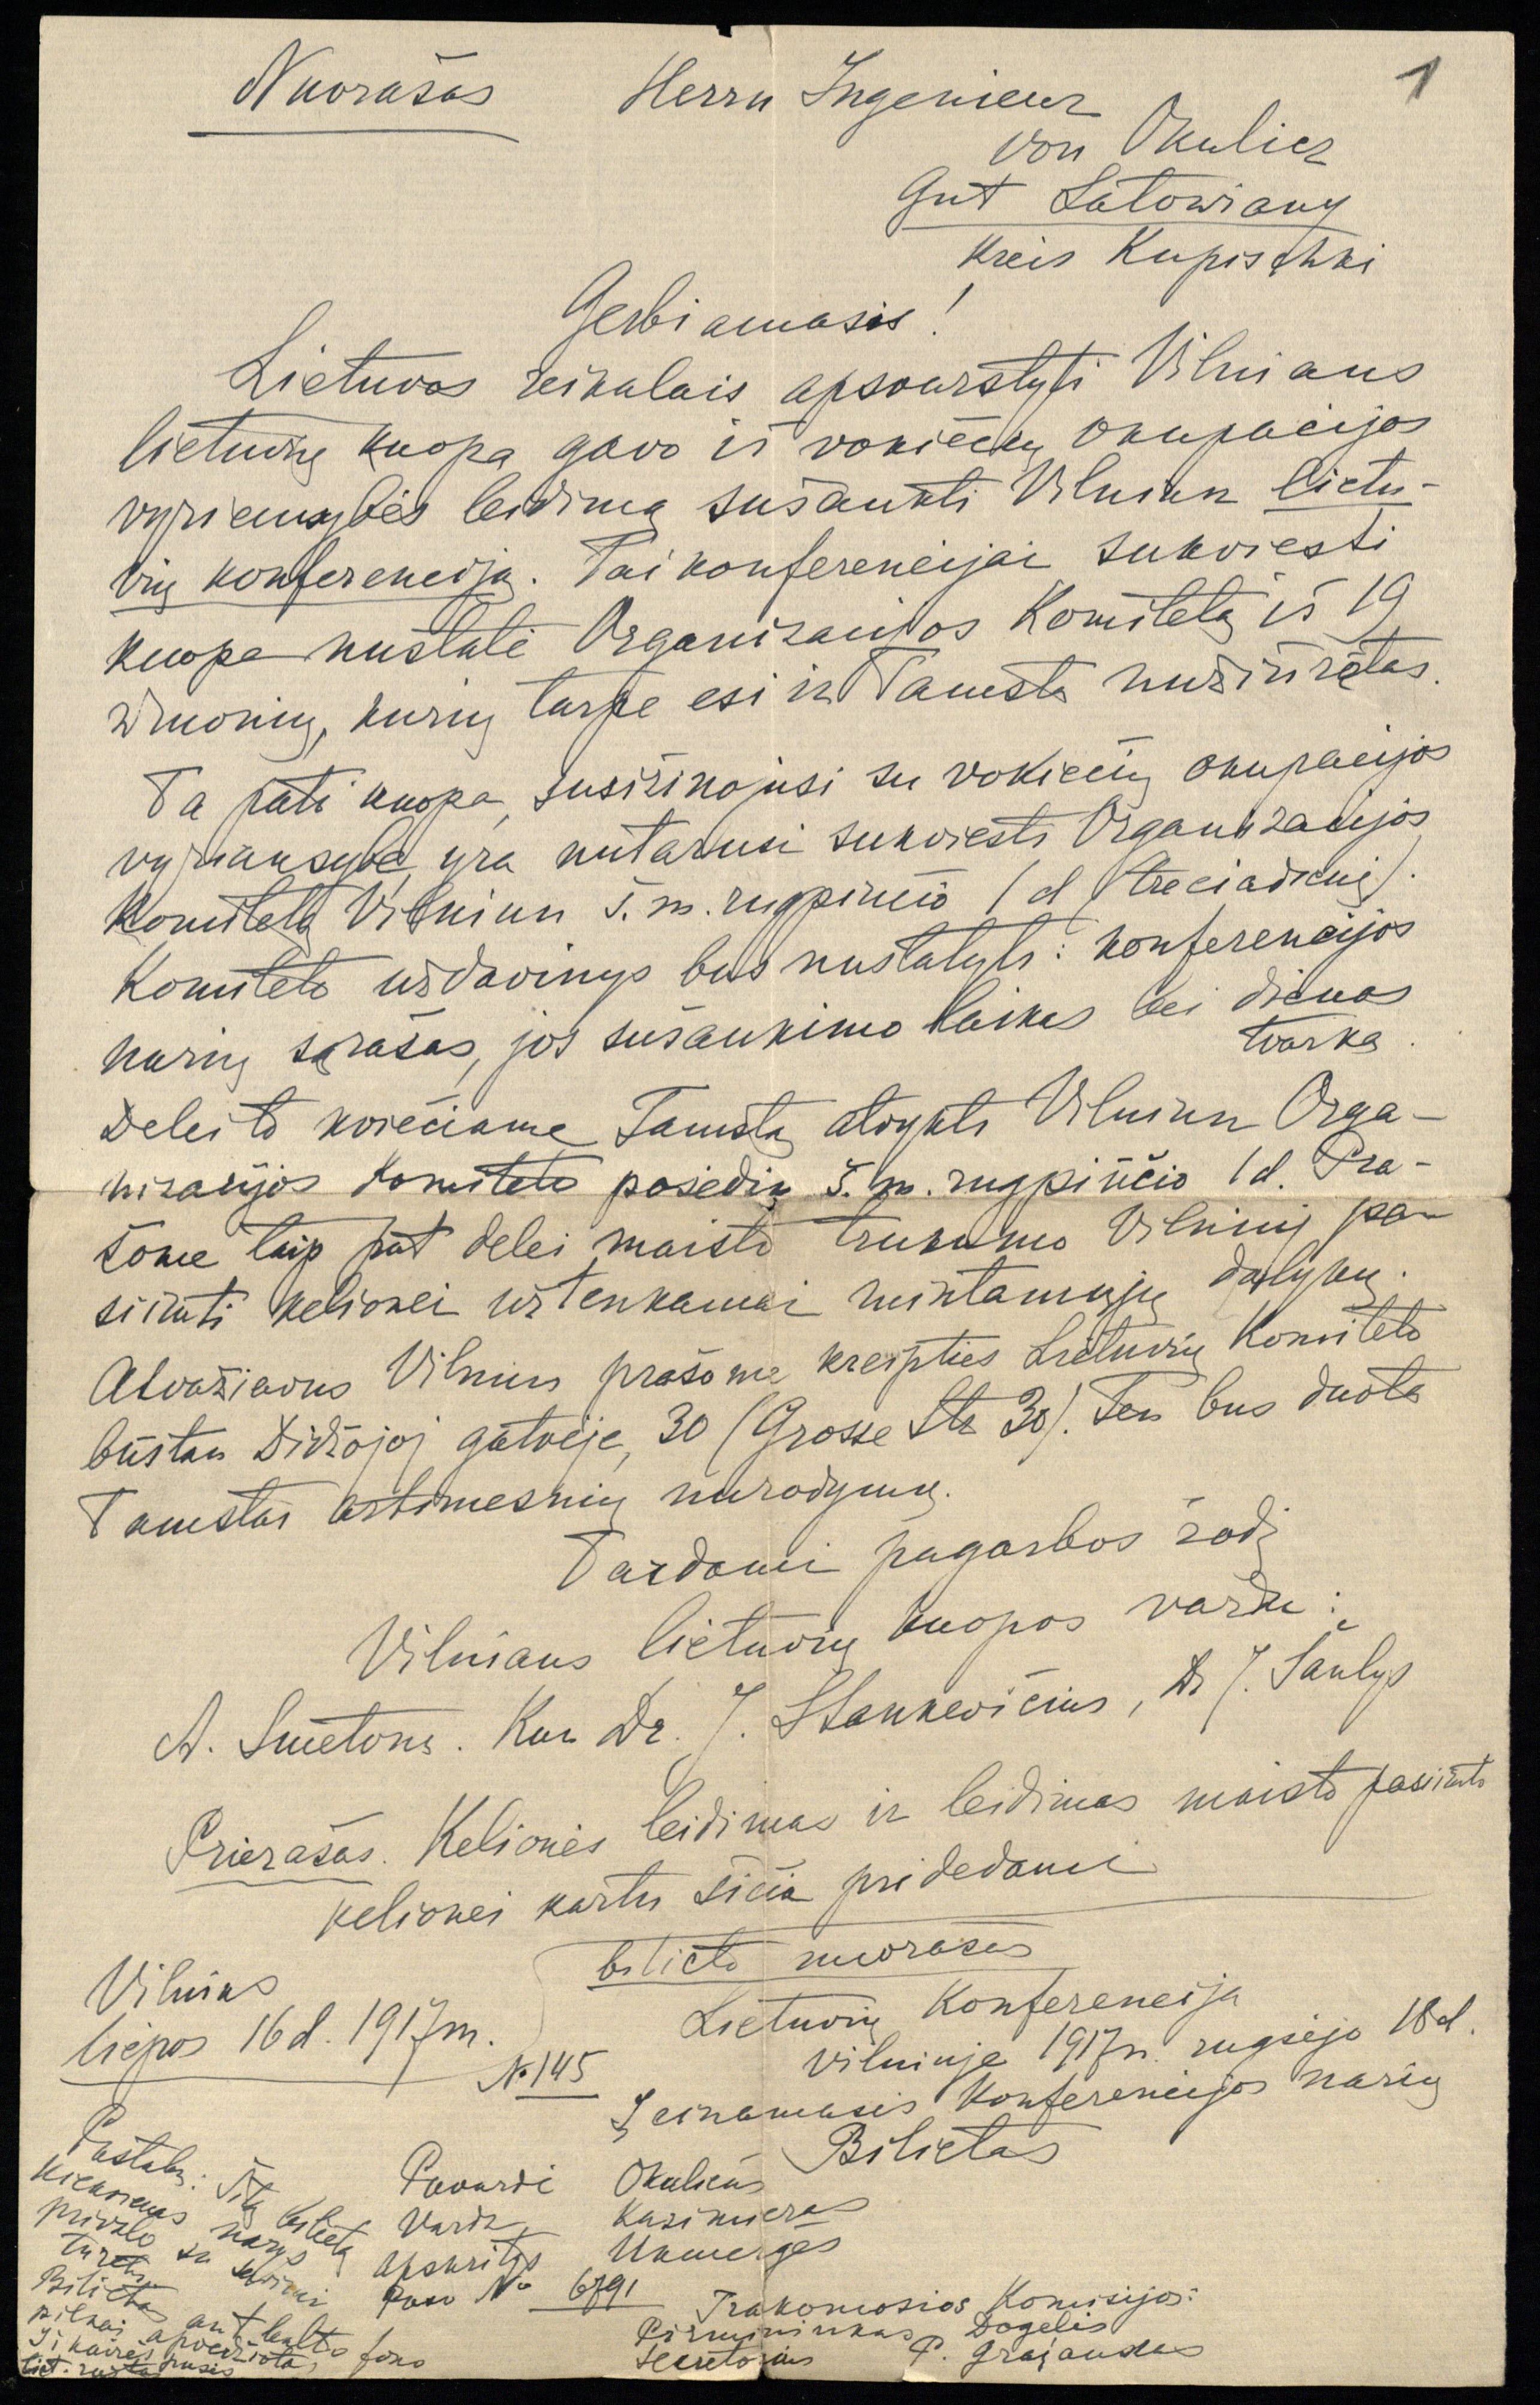 1
Nuorašas Herrn Ingenieur
von Okulicz
Gut Latowiany
Kreis Kupischki
Gerbiamasis!
Lietuvos reikalais apsvarstyti Vilniaus
lietuvių kuopa gavo iš vokiečių okupacijos
vyriausybės leidimą sušaukti Vilniun lietu-
vių konferenciją. Tai konferencijai sukviesti
kuopa nustatė Organizacijos Komitetą iš 19
žmonių, kurių tarpe esi ir Tamsta nužiūrėtas.
Ta pati kuopa, susižinojusi su vokiečių okupacijos
vyriausybe, yra nutarusi sukviesti Organizacijos
Komitetą Vilniun š. m. rugpiučio 1 d (trečiadienį).
Komiteto uždavinys bus nustatyti: konferencijos
narių sąrašas, jos sušaukimo laikas bei dienos
tvarka.
Delei to kviečiame Tamstą atvykti Vilniun Orga-
nizacijos Komiteto posėdin š. m. rugpiučio 1 d. Pra-
šome taip pat delei maisto trukumo Vilniuj pa-
siimti kelionei užtenkamai mintamųjų dalykų.
Atvažiavus Vilniun prašome kreipties Lietuvių Komiteto
būstan Didžiojoj gatvėje, 30 (Grosse Str 30). Ten bus duota
Tamstai artimesnių nurodymų.
Tardami pagarbos žodį
Vilniaus lietuvių kuopos vardu:
A. Smetona. Kun Dr. J. Stankevičius, Dr J. Šaulys
Prierašas. Kelionės leidimas ir leidimas maisto pasiimti
kelionei kartu šičia pridedami
Vilnius
liepos 16 d. 1917 m.
bilieto nuorašas
Lietuvių Konferencija
Vilniuje 1917 m. rugsėjo 18 d.
№ 145
Įeinamasis Konferencijos narių
Bilietas
Pavardė Okuličius
Vardas Kazimieras
Apskritys Ukmergės
Paso № 6791
Pastaba: Šitą bilietą
kiekvienas narys
privalo su savimi
turėti.
Bilietas ant balto fono
pilkai apvedžiota,
iš kairės pusės
liet.
Tvarkomosios Komisijos:
Pirmininkas Dogelis
Sekretorius P. Grajauskas